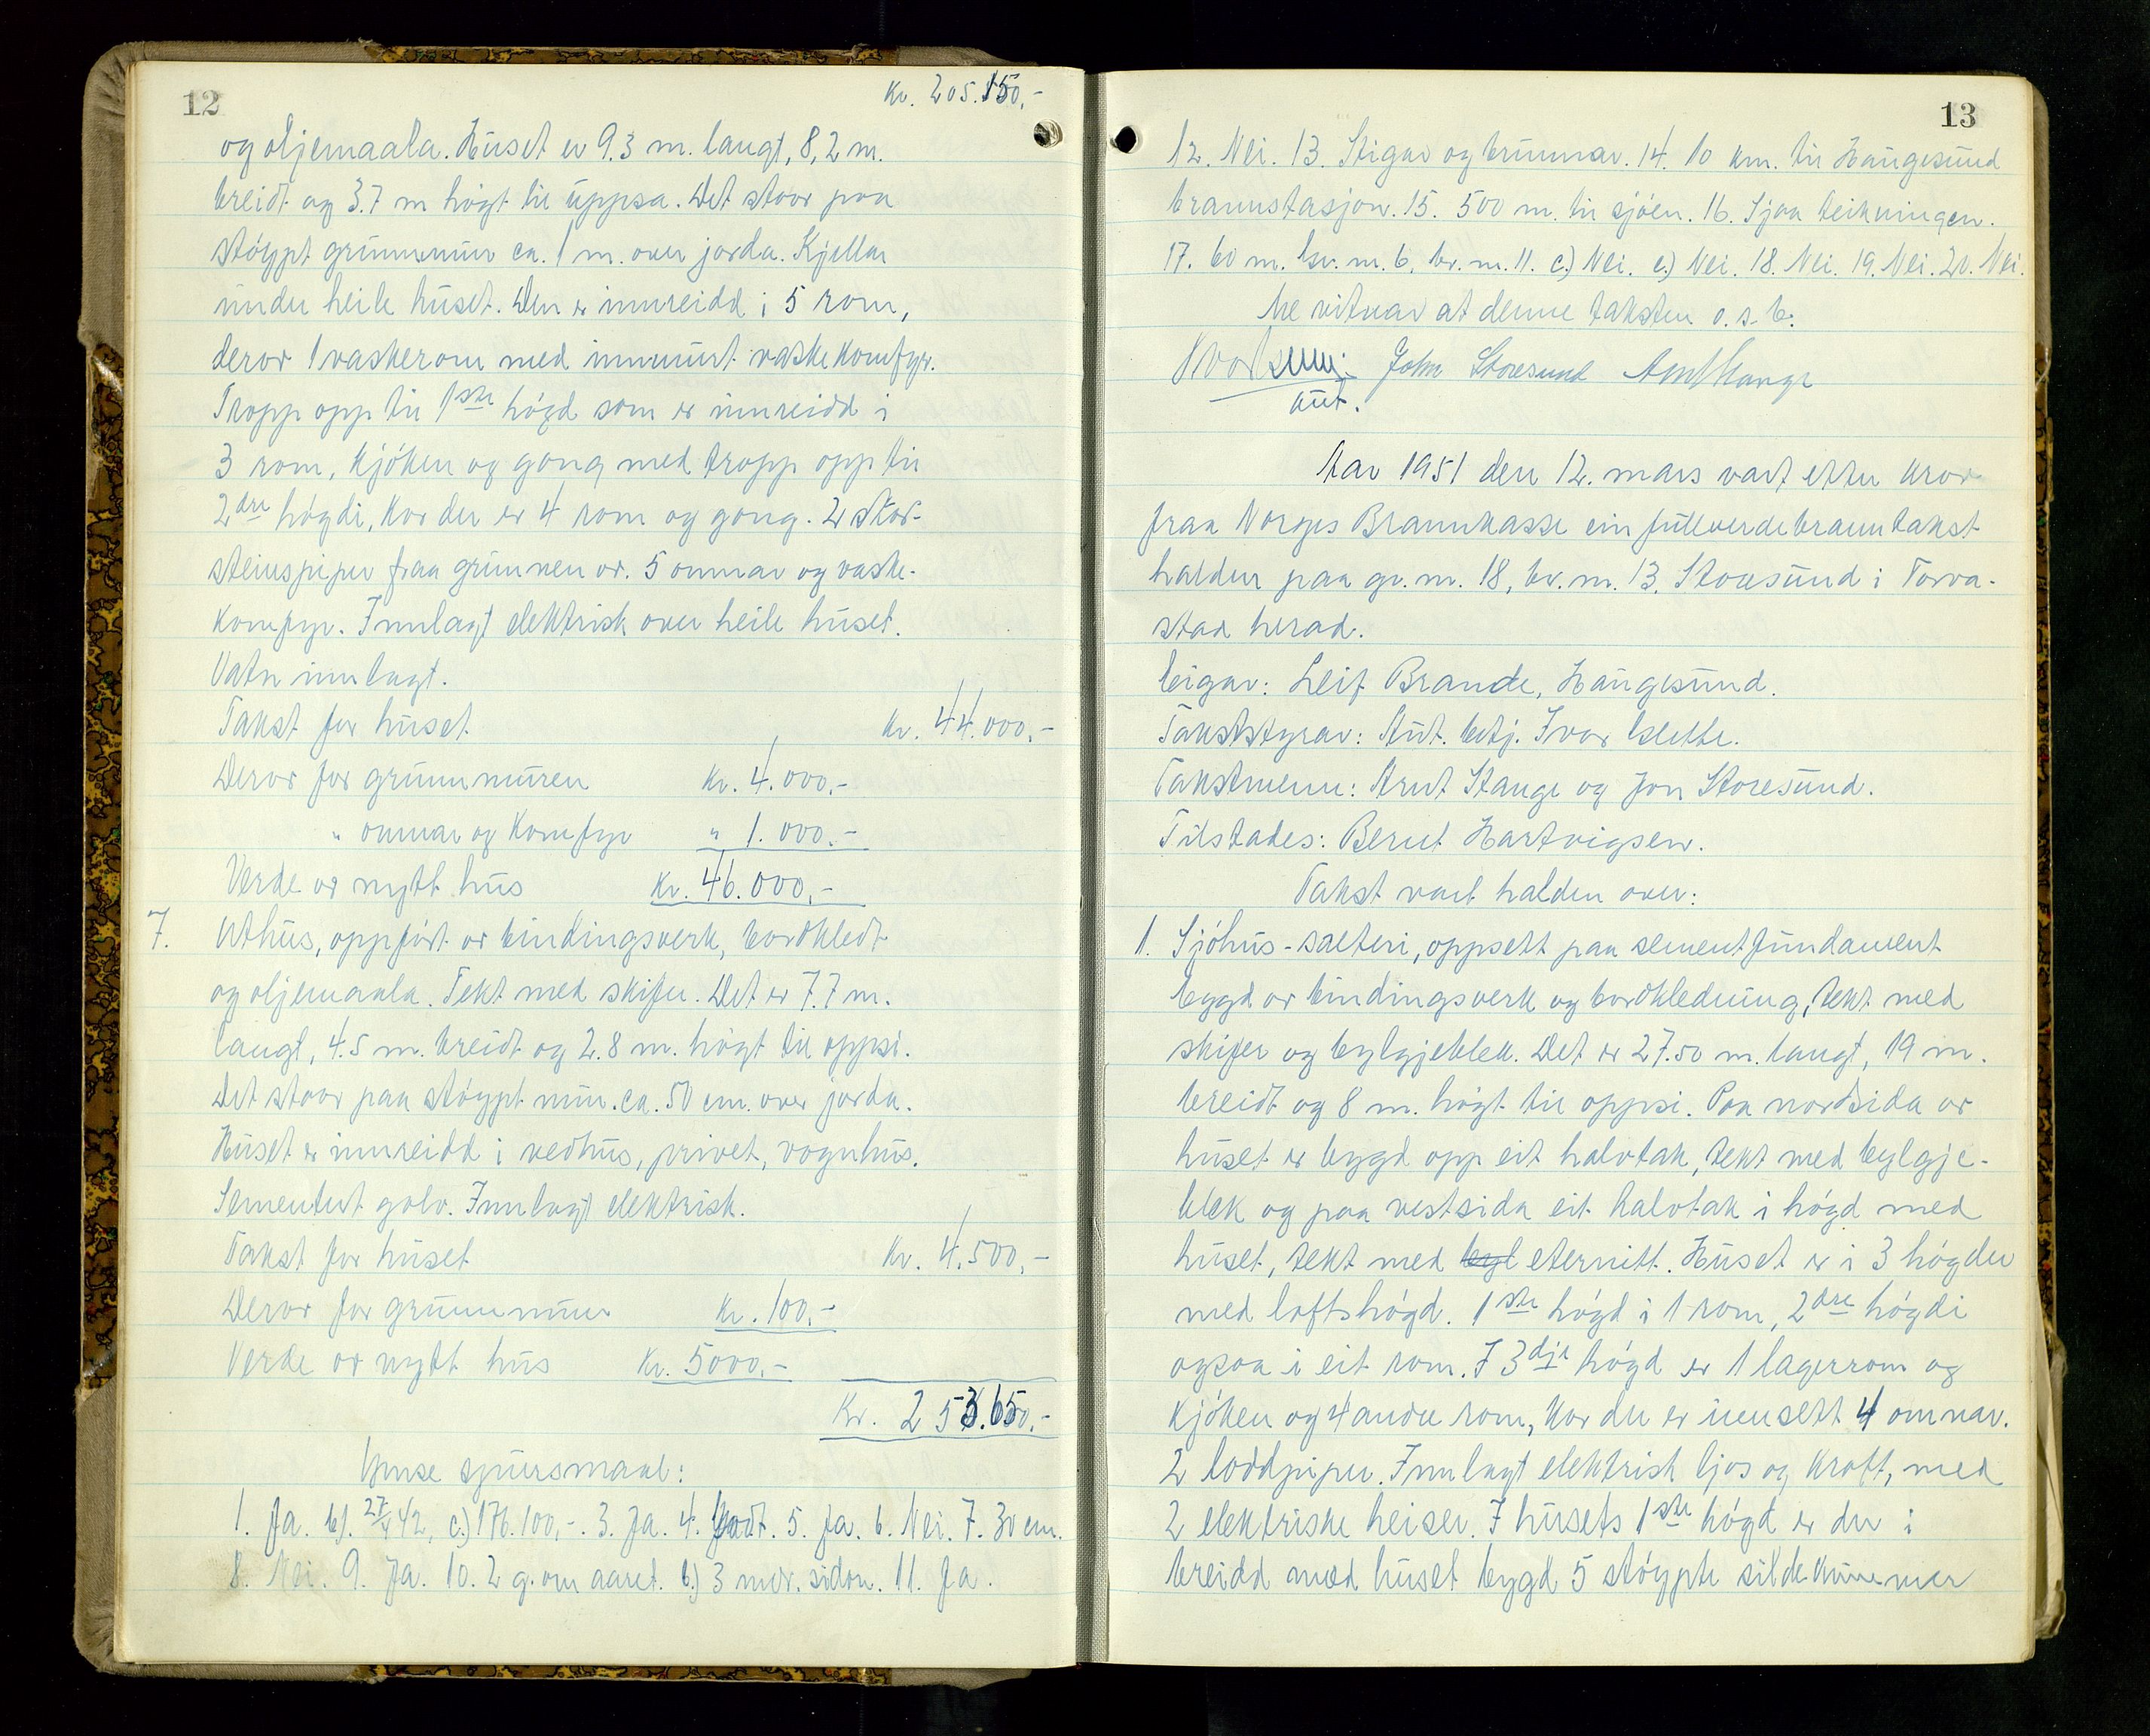 12
Kr. 205.150,-
og oljemaala. Huset er 9.3 m. langt, 8,2 m.
breidt og 3.7 m høgt til uppsa. Det staar paa
støypt grunnmur ca. 1 m. over jorda. Kjellar
under heile huset. Den er innreidd i 5 rom,
derav 1 vaskerom med innmurt vaskekomfyr.
Tropp opp til 1ste høgd som er innreidd i
3 rom, kjøken og gang med tropp opp til
2dre høgdi, kor der er 4 rom og gang. 2 skor-
steinspiper fraa grunnen av. 5 omnar og vaske-
komfyr. Innlagt elektrisk over heile huset.
Vatn innlagt.
Takst for huset Kr. 44.000,-
Derav for grunnmuren Kr. 4.000,-
" omnar og komfyr " 1.000.-
Verde av nytt hus Kr. 46.000,-
7. Uthus, oppført av bindingsverk, bordkledt
og oljemaala. Tekt med skifer. Det er 7.7 m.
langt, 4.5 m. breidt og 2.8 m. høgt til oppsi.
Det staar paa støypt mur. ca. 50 cm. over jorda.
Huset er innreidd i vedhus, privet, vognhus.
Sementert golv. Innlagt elektrisk.
Takst for huset Kr. 4.500,-
Derav for grunnmur Kr. 100,-
Verde av nytt hus Kr. 5000.-
Kr. 253.650,-
Ymse spursmaal:
1. Ja. b). 27/4 42, c.) 176.100,-. 3. Ja. 4. Godt. 5. Ja. 6. Nei. 7. 30 cm.
8. Nei. 9. Ja. 10. 2 g. om aaret. b.) 3 mdr. sidan. 11. Ja.
13
12. Nei. 13. Stigar og brunnar. 14. 10 km. til Haugesund
brannstasjon. 15. 500 m. til sjøen. 16. Sjaa teikningen.
17. 60 m. br. m. 11. c.) Nei. e.) Nei. 18. Nei. 19. Nei. 20. Nei.
Me vitnar at denne taksten o. s. b.
John Storesund Arnt Stange
aut.
Aar 1951 den 12. mars vart etter krav
fraa Norges Brannkasse ein fullverdebranntakst
halden paa gr. nr. 18, br. nr. 13. Storesund i Torva-
stad herad.
Eigar: Leif Brande, Haugesund.
Takststyrar: Aut. betj. Ivar Elette.
Takstmenn: Arnt Stange og Jon Storesund.
Tilstades: Bernt Hartvigsen.
Takst vart halden over:
1. Sjøhus-salteri, oppsett paa sementfundament
bygd av bindingsverk og bordkledning, tekt med
skifer og bylgjeblekk. Det er 27.50 m. langt, 19 m.
breidt og 8 m. høgt til oppsi. Paa nordsida av
huset er bygd opp eit halvtak, tekt med bylgje-
blek og paa vestsida eit halvtak i høgd med
huset, tekt med byl eternitt. Huset er i 3 høgder
med loftshøgd. 1ste høgd i 1 rom, 2dre høgdi
ogsaa i eit rom. I 3dje høgd er 1 lagerrom og
kjøken og 4 andre rom, kor der er innsett 4 omnar.
2 loddpiper. Innlagt elektrisk ljos og kraft, med
2 elektriske heiser. I husets 1ste høgd er der i
breidd med huset bygd 5 støypte silde kummer